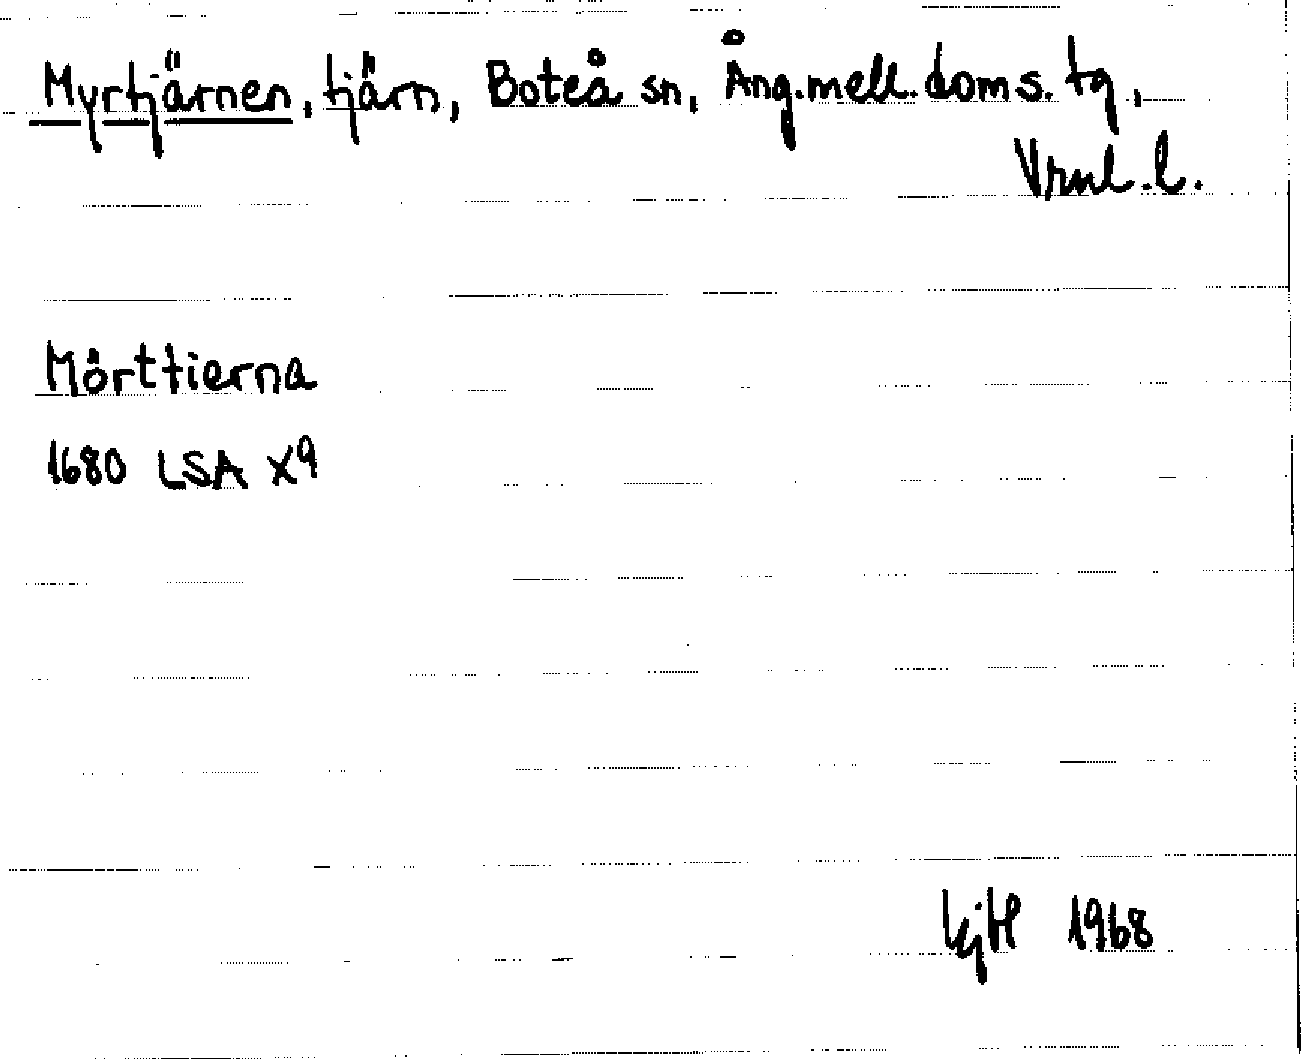 Myrtjärnen, tjärn, Boteå sn, Ång. mell. doms. tg,
Vrnl. l.
Mörttierna
1680 LSA X9
1968